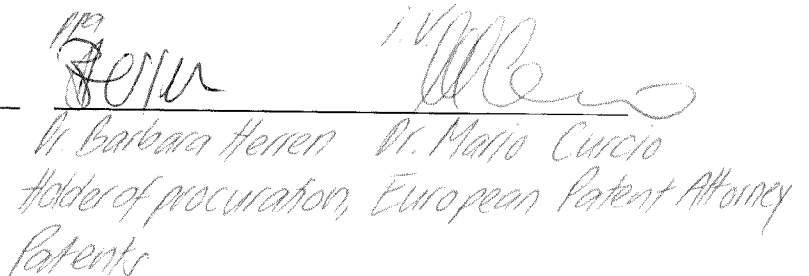 ppa i.V.
Herren
Dr. Barbara Herren Dr. Mario Curcio
Holder of procuration, European Patent Attorney
Patents